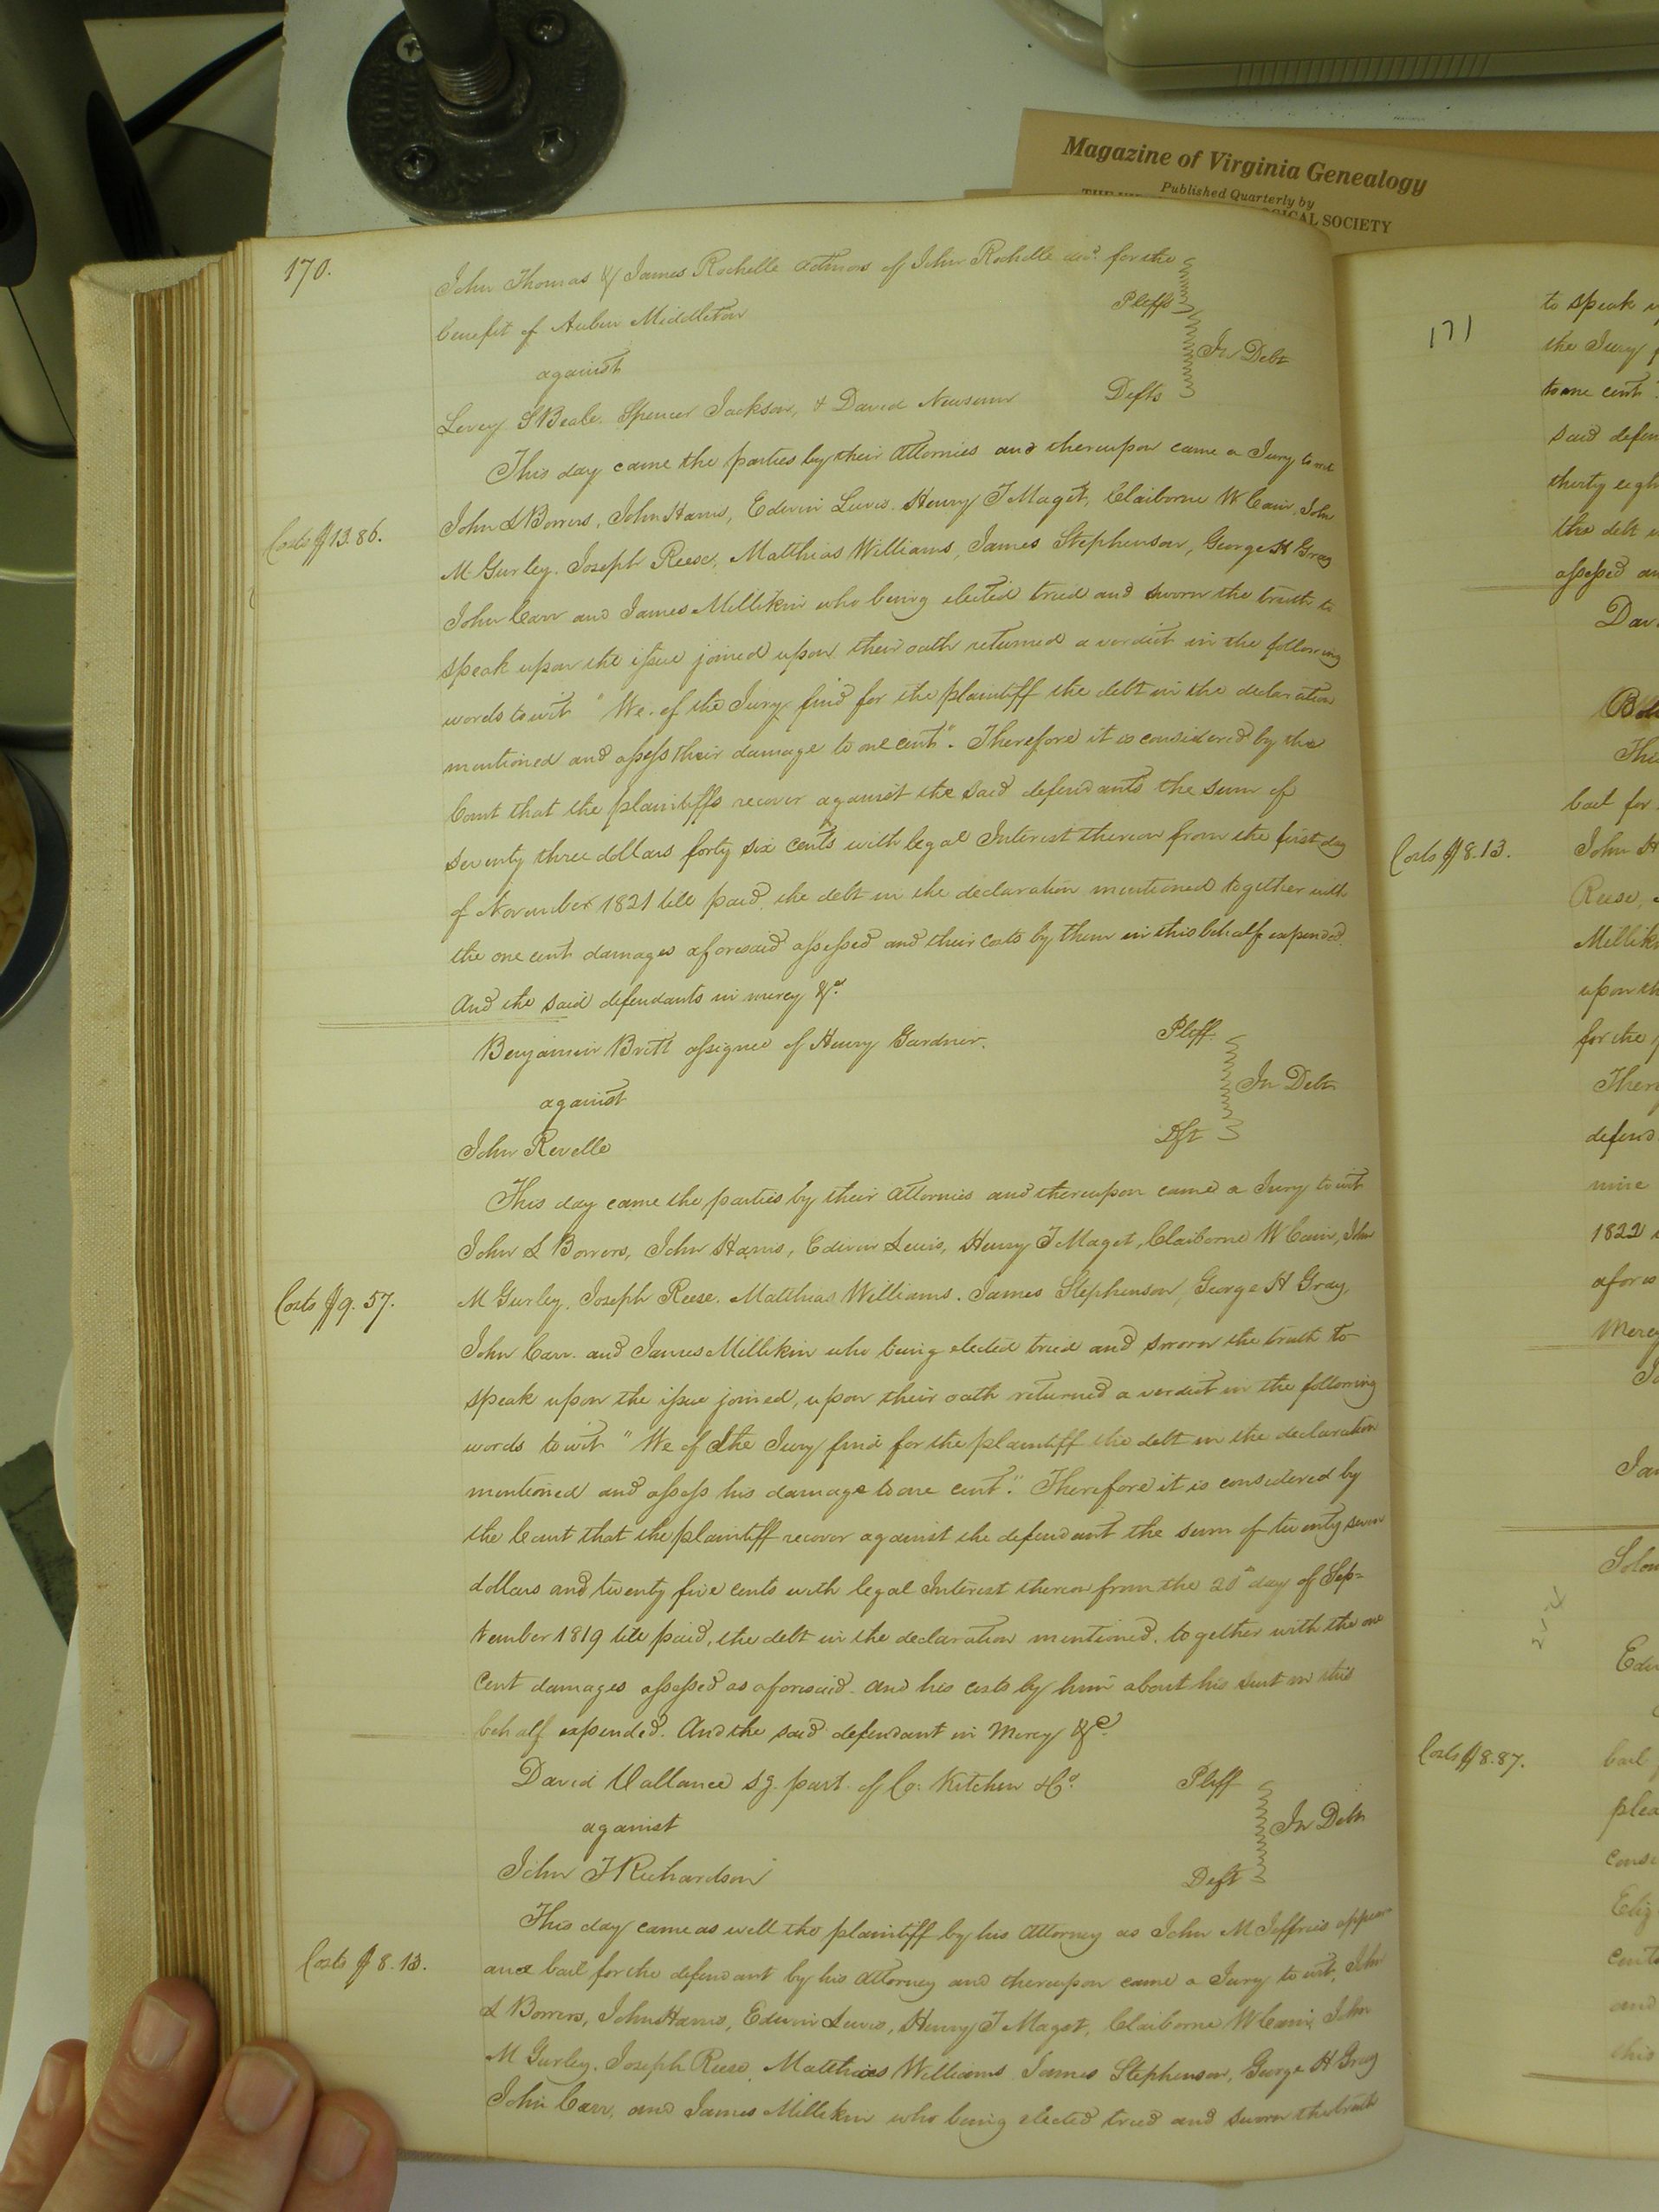 Magazine of Virginia Genealogy
Published Quarterly by
SOCIETY
170.
John Thomas & James Rochelle admors of John Rochelle decd. for the
benefit of Auben Middleton Pleffs
against In Debt
Levey S Beale. Spencer Jackson, & David Newsum Defts
This day came the parties by their Attornies and thereupon came a Jury to wit
John L Borrers, John Harris, Edwin Lewis. Henry T Maget, Claiborne W Cain, John
Costs $13.86.
M Gurley. Joseph Reese, Matthias Williams, James Stephenson, George H Gray
John Carr and James Millikin who being elected tried and sworn the truth to
speak upon the issue joined upon their oath returned a verdict in the following
words to wit "We of the Jury find for the plaintiff the debt in the declaration
mentioned and assess their damage to one cent". Therefore it is considered by the
Court that the plaintiffs recover against the said defendants the sum of
seventy three dollars forty six cents with legal Interest thereon from the first day
of November 1821 till paid, the debt in the declaration mentioned together with
the one cent damages aforesaid assessed and their costs by them in this behalf expended.
And the said defendants in mercy &c.
Benjamin Britt assignee of Henry Gardner. Pleff
against In Debt
John Revelle Dft
This day came the parties by their Attornies and thereupon came a Jury to wit
John L Borrers, John Harris, Edwin Lewis, Henry T Maget, Claiborne W Cain, John
Costs $9.57.
M Gurley, Joseph Reese. Matthias Williams. James Stephenson, George H Gray,
John Carr. and James Millikin who being elected tried and sworn the truth to
speak upon the issue joined, upon their oath returned a verdict in the following
words to wit "We of the Jury find for the plaintiff the debt in the declaration
mentioned and assess his damage to one cent." Therefore it is considered by
the Court that the plaintiff recover against the defendant the sum of twenty seven
dollars and twenty five cents with legal Interest thereon from the 20th day of Sep=
tember 1819 till paid, the debt in the declaration mentioned. together with the one
Cent damages assessed as aforesaid. and his costs by him about his suit in this
behalf expended. And the said defendant in Mercy &c.
David Vallance sg. part. of Co. Kitchen & Co. Pleff
against In Debt
John T Richardson Deft
This day came as well the plaintiff by his Attorney as John M Jeffries appear
Costs $8.13.
ance bail for the defendant by his Attorney and thereupon came a Jury to wit, John
L Borrers, John Harris, Edwin Lewis, Henry T Maget, Claiborne W Cain, John
M Gurley. Joseph Reese, Matthias Williams James Stephenson, George H Gray
John Carr, and James Millikin who being elected tried and sworn the truth
171
to speak
the Jury
to one cent
said defen
thirty eigh
the debt
assessed an
bail for
Costs $8.13.
John H
Reese,
Millik
upon th
for the
Ther
defend
nine
1822
afores
Mercy
Costs $8.87.
bail
plea
cons
Cents
and
this